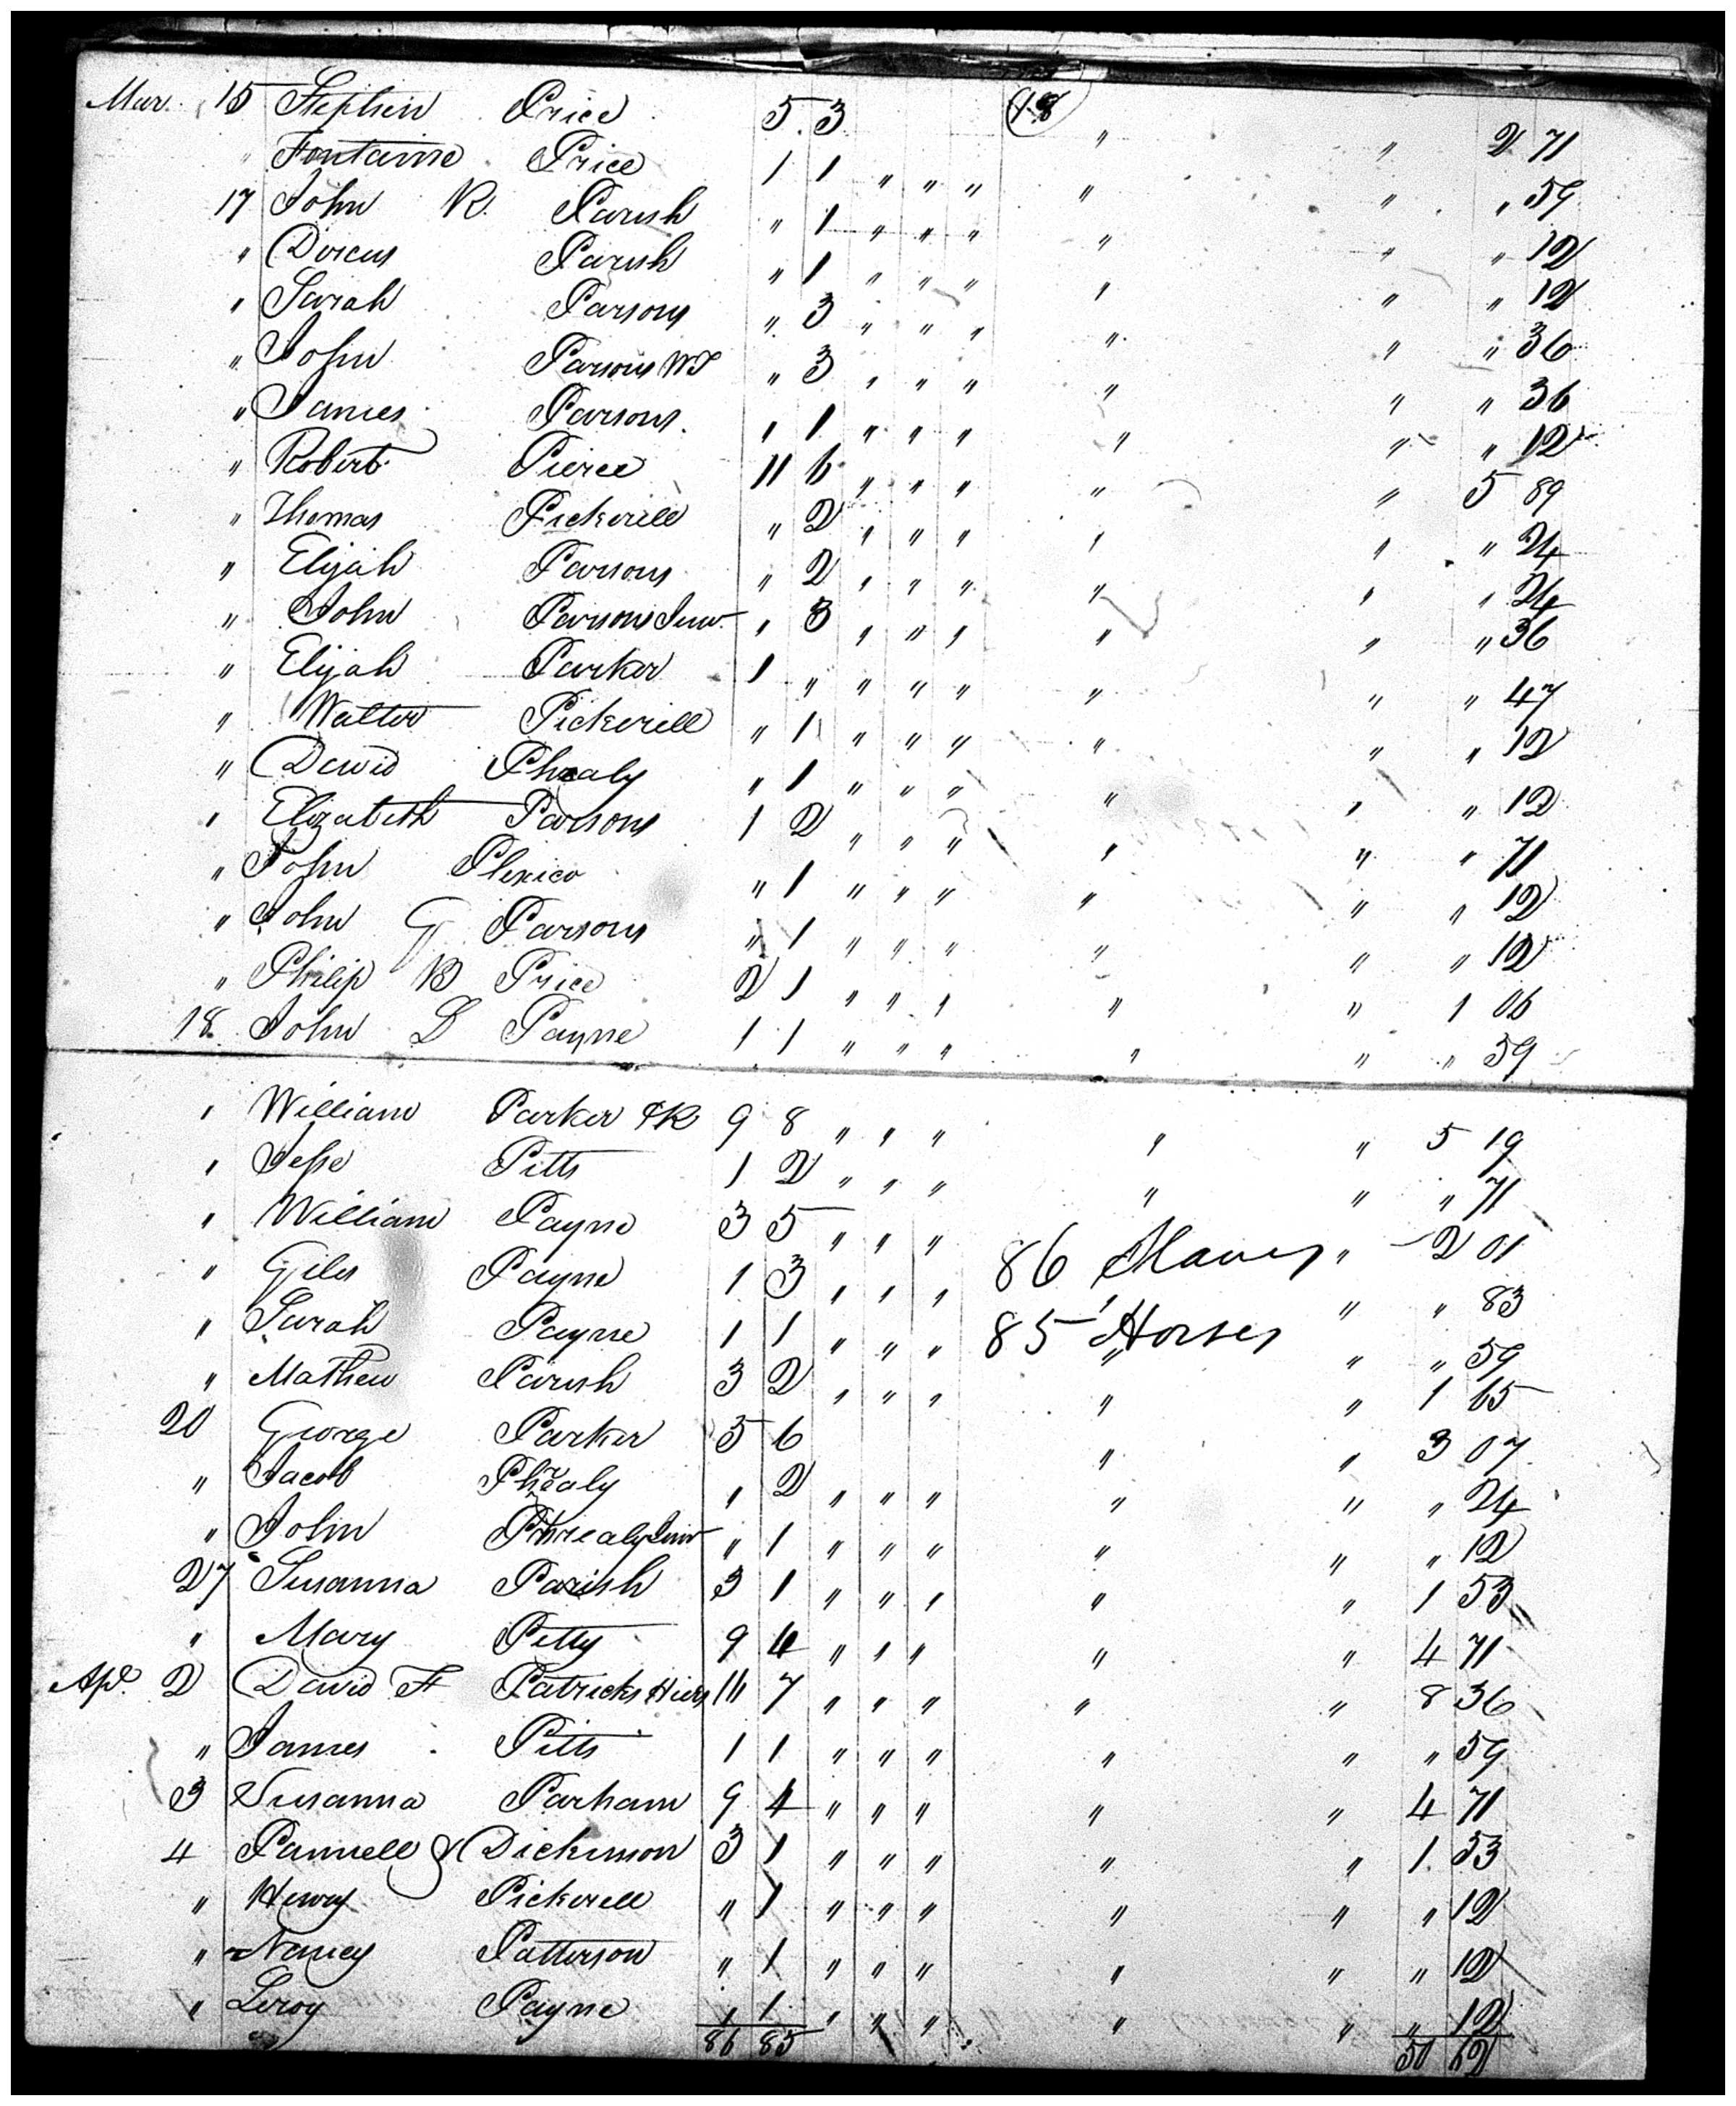 (18)
Mar. 15 Stephen Price 5 3 " " 2 71
" Fontaine Price 1 1 " " " " " " 59
17 John R. Parish " 1 " " " " " " 12
" Dorcus Parish " 1 " " " " " " 12
" Sarah Parsons " 3 " " " " " " 36
" John Parsons WT " 3 " " " " " " 36
" James Parsons " 1 " " " " " " 12
" Robert Pierce 11 6 " " " " " 5 89
" Thomas Pickerill " 2 " " " " " " 24
" Elijah Parsons " 2 " " " " " " 24
" John Parsons Junr " 3 " " " " " " 36
" Elijah Parker 1 " " " " " " " 47
" Walter Pickerill " 1 " " " " " " 12
" David Phraly " 1 " " " " " " 12
" Elizabeth Parsons 1 2 " " " " " " 71
" John Plexico " 1 " " " " " " 12
" John G Parsons " 1 " " " " " " 12
" Philip B Price 2 1 " " " " " 1 06
18 John D Payne 1 1 " " " " " " 59
" William Parker SR 9 8 " " " " " 5 19
" Jesse Pitts 1 2 " " " " " " 71
" William Payne 3 5 " " " 86 Slaves " 2 01
" Giles Payne 1 3 " " " " " 83
" Sarah Payne 1 1 " " " 85 Horses " " " 59
" Mathew Parish 3 2 " " " " " 1 65
20 George Parker 5 6 " " 3 07
" Jacob Phrealy " 2 " " " " " " 24
" John Phrealy Junr " 1 " " " " " " 12
27 Susanna Parish 3 1 " " " " " 1 53
" Mary Petty 9 4 " " " " " 4 71
Apl. 2 David F Patricks Heirs 16 7 " " " " " 8 36
" James Pitts 1 1 " " " " " " 59
3 Susanna Parham 9 4 " " " " " 4 71
4 Pannell & Dickinson 3 1 " " " " " 1 53
" Henry Pickerell " 1 " " " " " " 12
" Nancy Patterson " 1 " " " " " " 12
" Leroy Payne " 1 " " " " " " 12
86 85 50 62